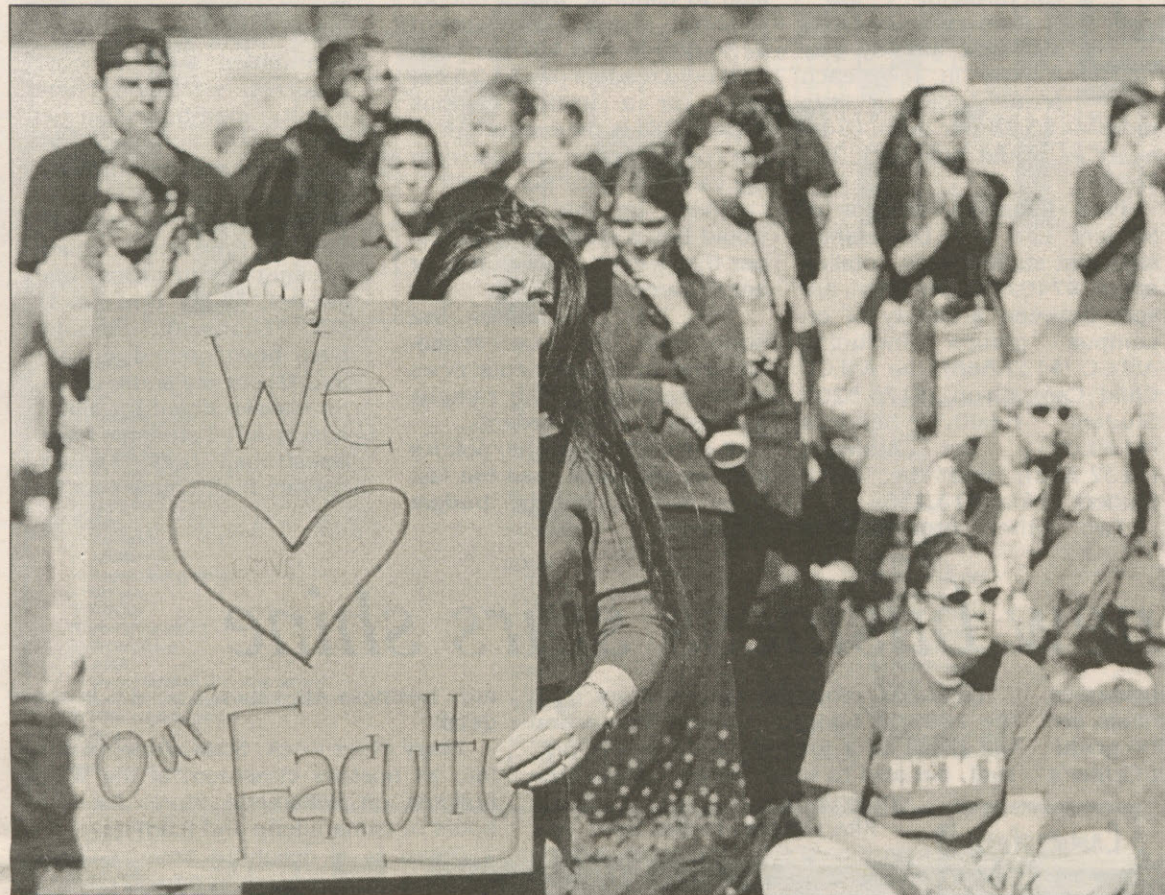 We
LOVE
our Faculty
HEMP